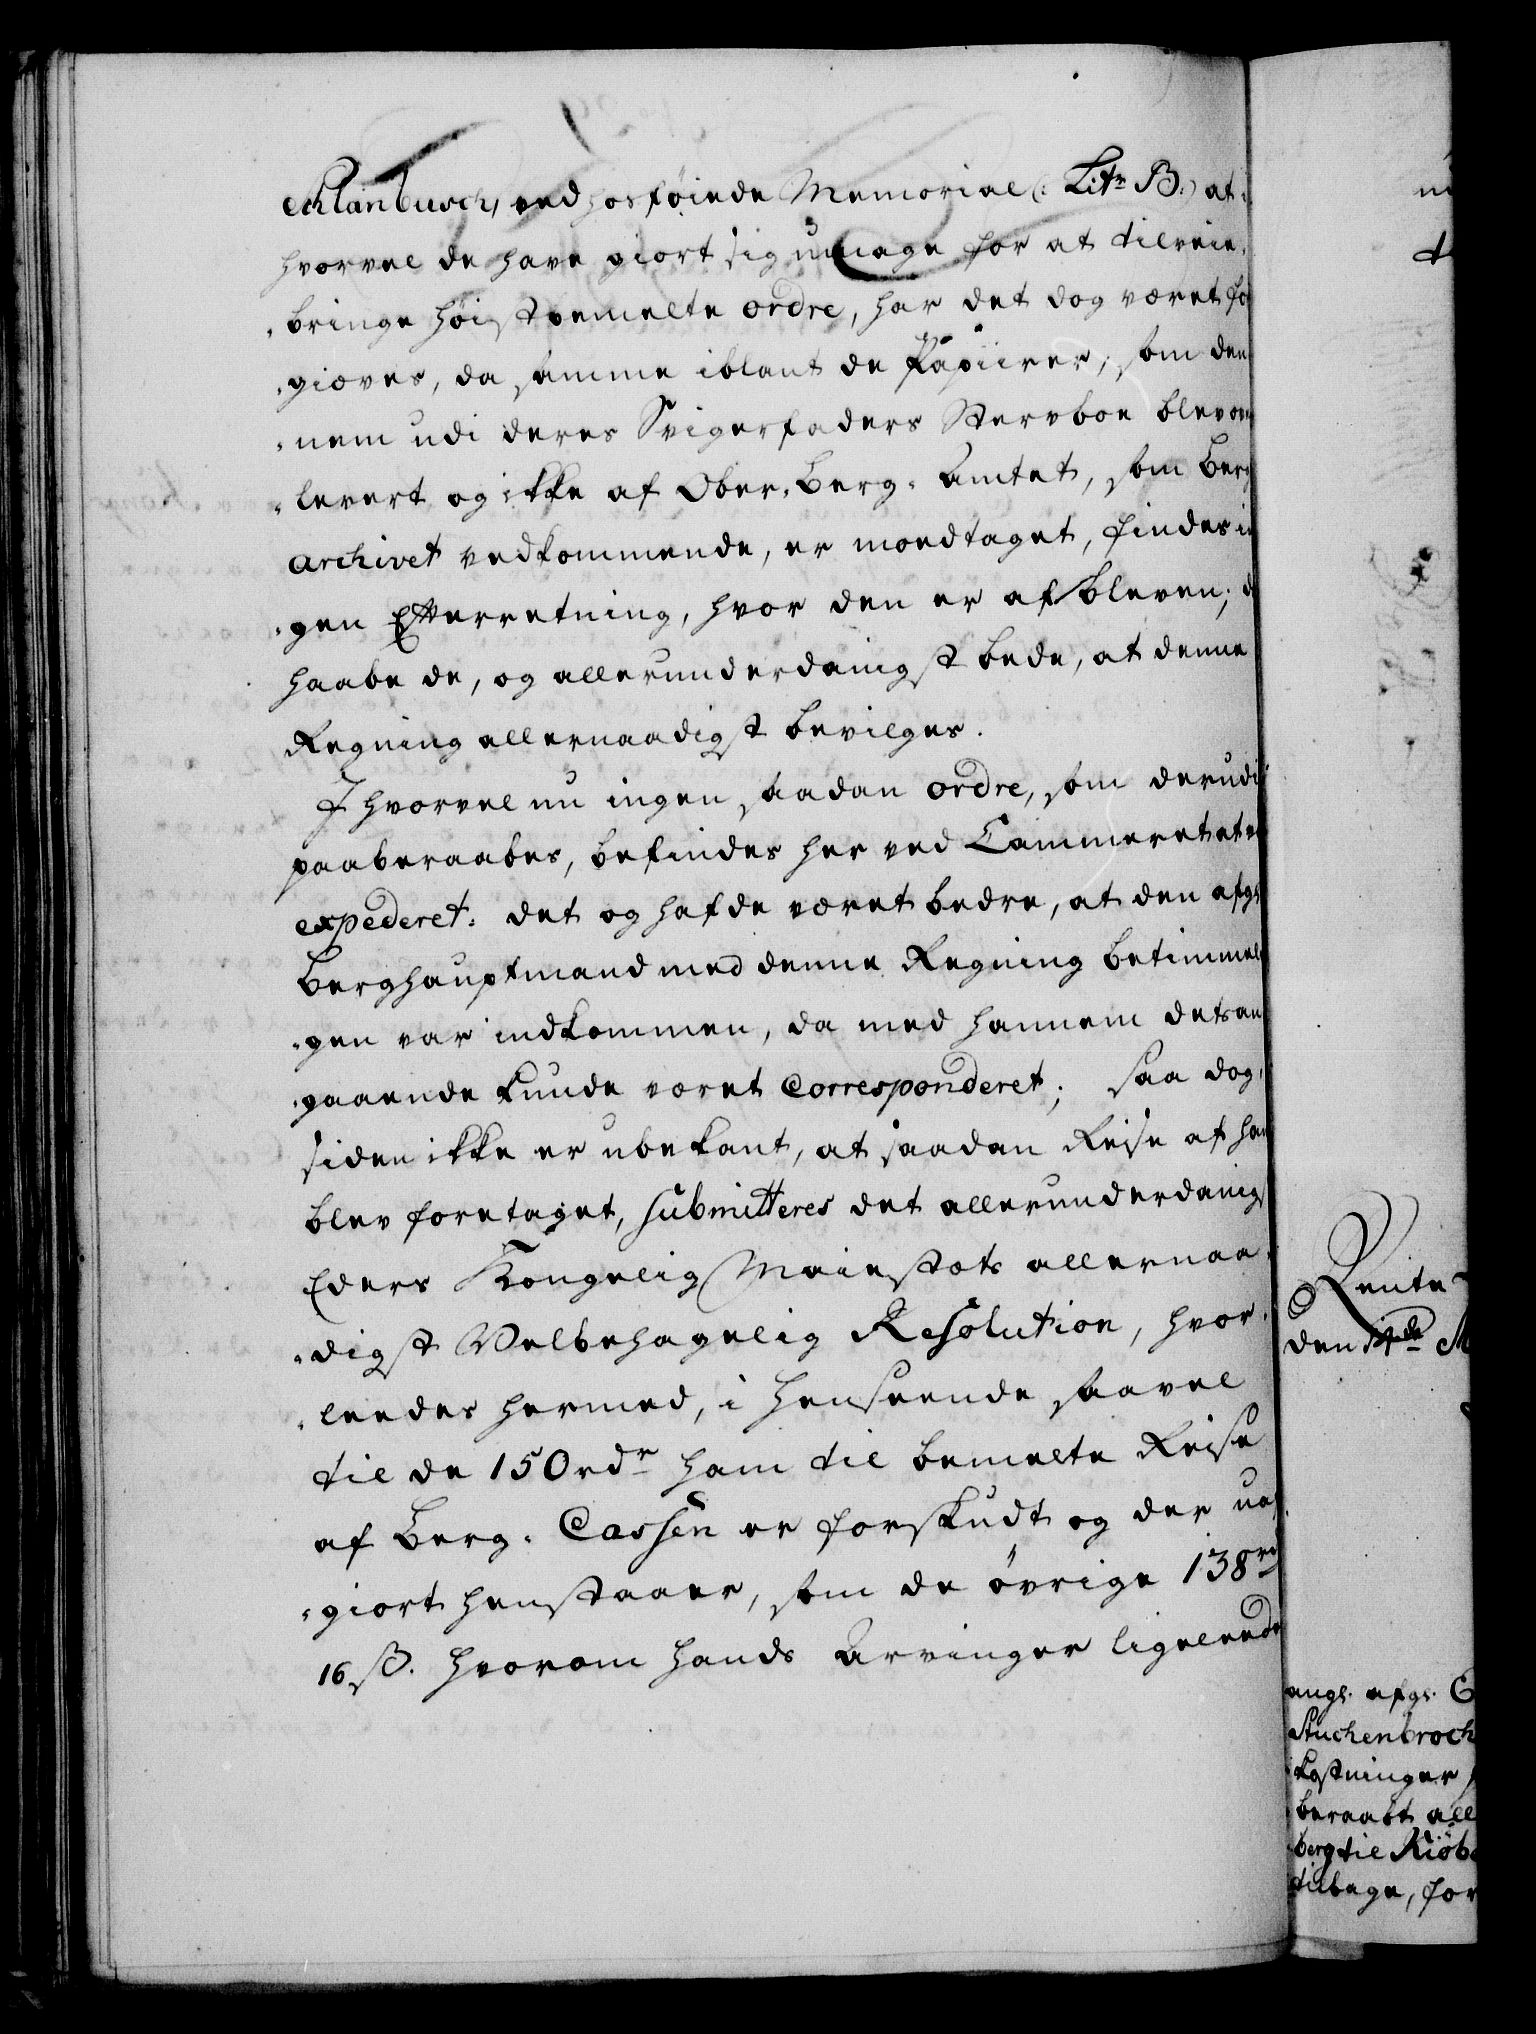 Schlanbusch, ved hosføiede Memorial (: Litr B:) at i
hvorvel de have giort sig umage for at tilveie-
-bringe høistbemelte ordre, har det dog været for
-giæves, da samme iblant de Papiirer, som den
-nem udi deres Svigerfaders Stervboe blev over
-levert og ikke af Ober-Berg-Amtet, som Berg
Archivet vedkommende, er moedtaget, findes in
-gen Efterretning, hvor den er afbleven; de
haabe de, og allerunderdanigst bede, at denne
Regning allernaadigst bevilges.
Ihvorvel nu ingen saadan ordre, som derudi
paaberaabes, befindes her ved Cammeret at være
expederet: det og hafde været bedre, at den afgl.
Berghauptmand med denne Regning betimmel
-gen var indkommen, da med hannem dets an
-gaaende kunde været Corresponderet; saa dog,
siden ikke er ubekant, at saadan Reise af ham
blev foretaget, submitteres det allerunderdanigst
Eders Kongelig Maiestæts allernaa-
-digst Velbehagelig Resolution, hvor-
-leedes hermed, i Henseende saavel
til de 150 rdr ham til bemelte Reise
af Berg-Cassen er forskudt og der uaf
-giort henstaaer, som de øvrige 138 rd
16 ß. hvorom hands Arvinger ligeleedes
Rente-
den 14de M
angl. afgl.
Stuchenbroch
kostninger
beraabt all
berg til Kiøb
tilbage, for